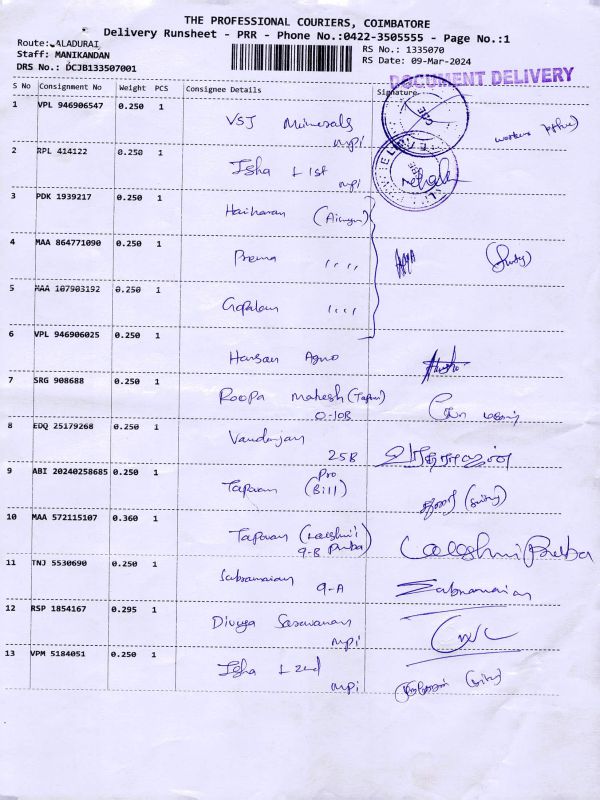 THE PROFESSIONAL COURIERS, COIMBATORE
Delivery Runsheet - PRR - Phone No.:0422-3505555 - Page No.:1
Route: ALADURAI
RS No.: 1335070
Staff: MANIKANDAN
RS Date: 09-Mar-2024
DRS No.: DCJB133507001
DOCUMENT DELIVERY
S No Consignment No Weight PCS Consignee Details Signature
1 VPL 946906547 0.250 1 VSJ Minerals
mpi
2 RPL 414122 0.250 1 Isha L 1st
mpi
3 PDK 1939217 0.250 1 Hariharan
4 MAA 864771090 0.250 1 Prema ,,,,
5 MAA 107903192 0.250 1 Gopalan ,,,,
6 VPL 946906025 0.250 1 Hansan Agro
7 SRG 908688 0.250 1 Roopa Mahesh
0-10B
8 EDQ 25179268 0.250 1 Vandanjan
25B
9 ABI 20240258685 0.250 1 Tapovan Pro
(Bill)
10 MAA 572115107 0.360 1 Tapovan (Lakshmi
9-B Praba) Lakshmi Praba
11 TNJ 5530690 0.250 1 Subramanian
9-A Subramanian
12 RSP 1854167 0.295 1 Divya Saravanan
mpi
13 VPM 5184051 0.250 1 Isha L 2nd
mpi